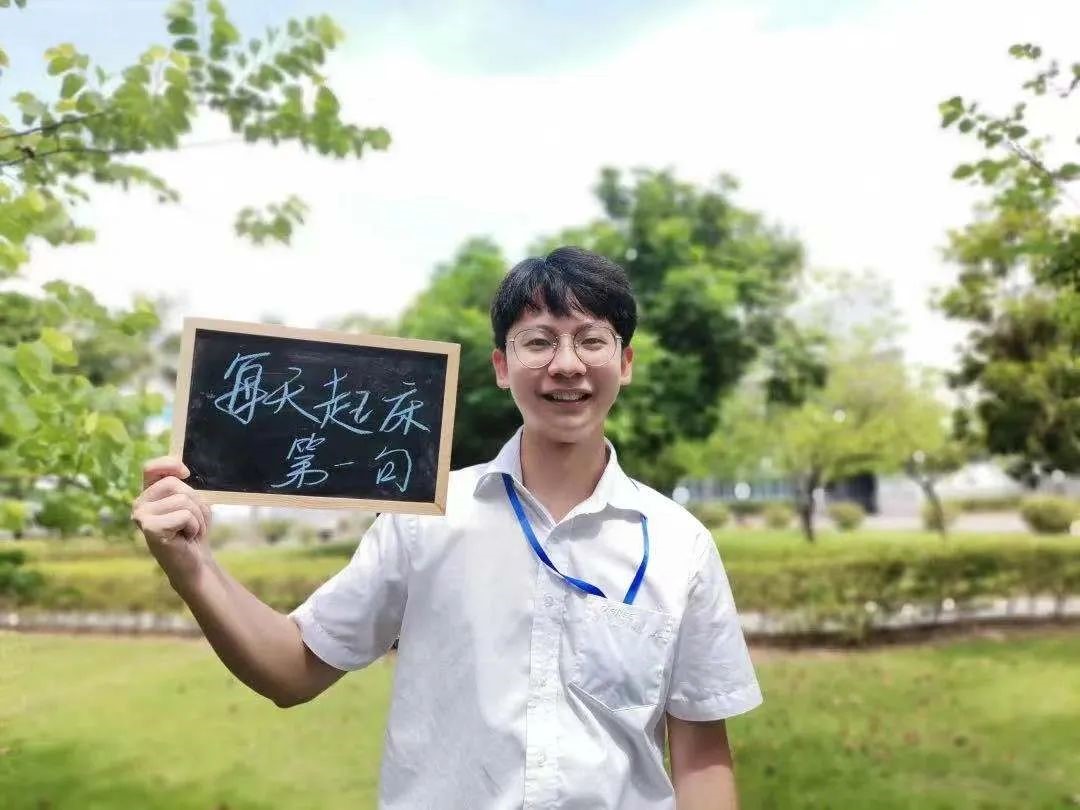 每天起床
第一句